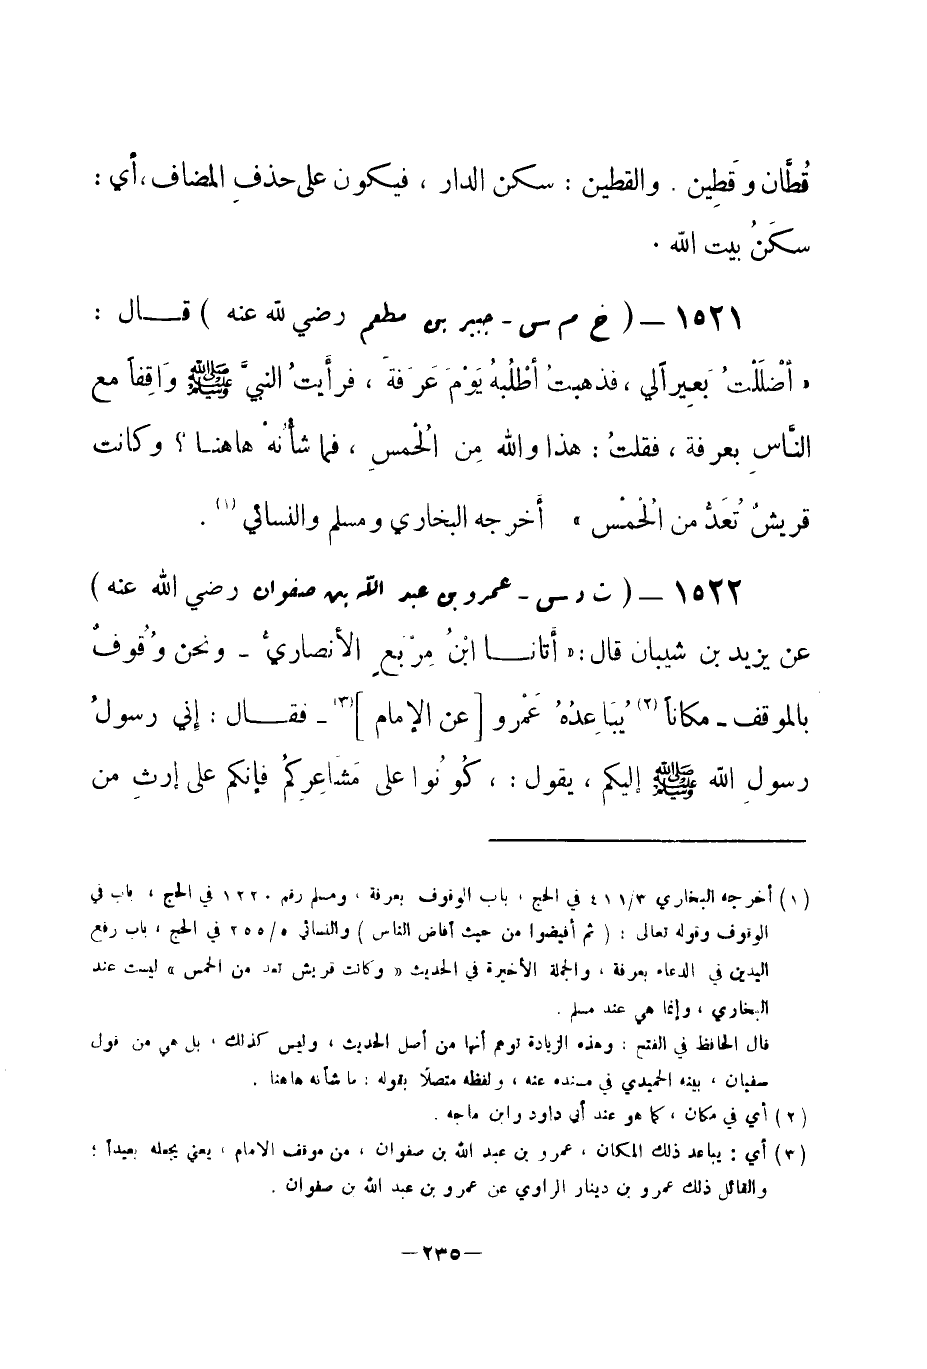 قُطَّان وقَطِين . والقطين : سكن الدار ، فيكون على حذفِ المضاف ، أي :
سكَنُ بيت الله .
١٥٢١ – ( خ م س - جبير بن مطعم رضي لله عنه ) قـــال :
« أَضْلَلْتُ بَعيراً لي ، فذهبتُ أَطْلُبهُ يَوْمَ عَرَفةَ ، فرأيتُ النبيَّ ﷺ وَاقِفاً مع
النَّاسِ بعرفة ، فقلتُ : هذا والله مِن الْحُمسِ ، فما شأنُهْ هاهنـا ؟ وكانت
قريشٌ تُعَدُّ من الْحُمْسِ » أخرجه البخاري ومسلم والنسائي (١) .
١٥٢٢ – ( ت د س - عمرو بن عبد الله بن صفوان رضي الله عنه )
عن يزيد بن شيبان قال : « أتانـــا ابنُ مِرْبَعٍ الأنصاريُّ - ونحن وُقُوفٌ
بالموقف - مكاناً (٢) يُبَاعِدُهُ عَمْرو [ عن الإمام ] (٣) - فقـــال : إني رسولُ
رسولِ الله ﷺ إليكم ، يقول : ، كُونُوا على مَشَاعِرِكُمْ فإنكم على إرثٍ من
(١) أخرجه البخاري ٤١١/٣ في الحج ، باب الوقوف بعرفة ، ومسلم رقم ١٢٢٠ في الحج ، باب في
الوقوف وقوله تعالى : ( ثم أفيضوا من حيث أفاض الناس ) والنسائي ٢٥٥/٥ في الحج ، باب رفع
اليدين في الدعاء بعرفة ، والجملة الأخيرة في الحديث « وكانت قريش تعد من الحمس » ليست عند
البخاري ، وإنما هي عند مسلم .
قال الحافظ في الفتح : وهذه الزيادة توهم أنها من أصل الحديث ، وليس كذلك ، بل هي من قول
سفيان ، بينه الحميدي في مسنده عنه ، ولفظه متصلًا بقوله : ما شأنه هاهنا .
(٢) أي في مكان ، كما هو عند أبي داود وابن ماجه .
(٣) أي : يباعد ذلك المكان ، عمرو بن عبد الله بن صفوان ، من موقف الامام ، يعني يجعله بعيداً ؛
والقائل ذلك عمرو بن دينار الراوي عن عمرو بن عبد الله بن صفوان .
– ٢٣٥ –